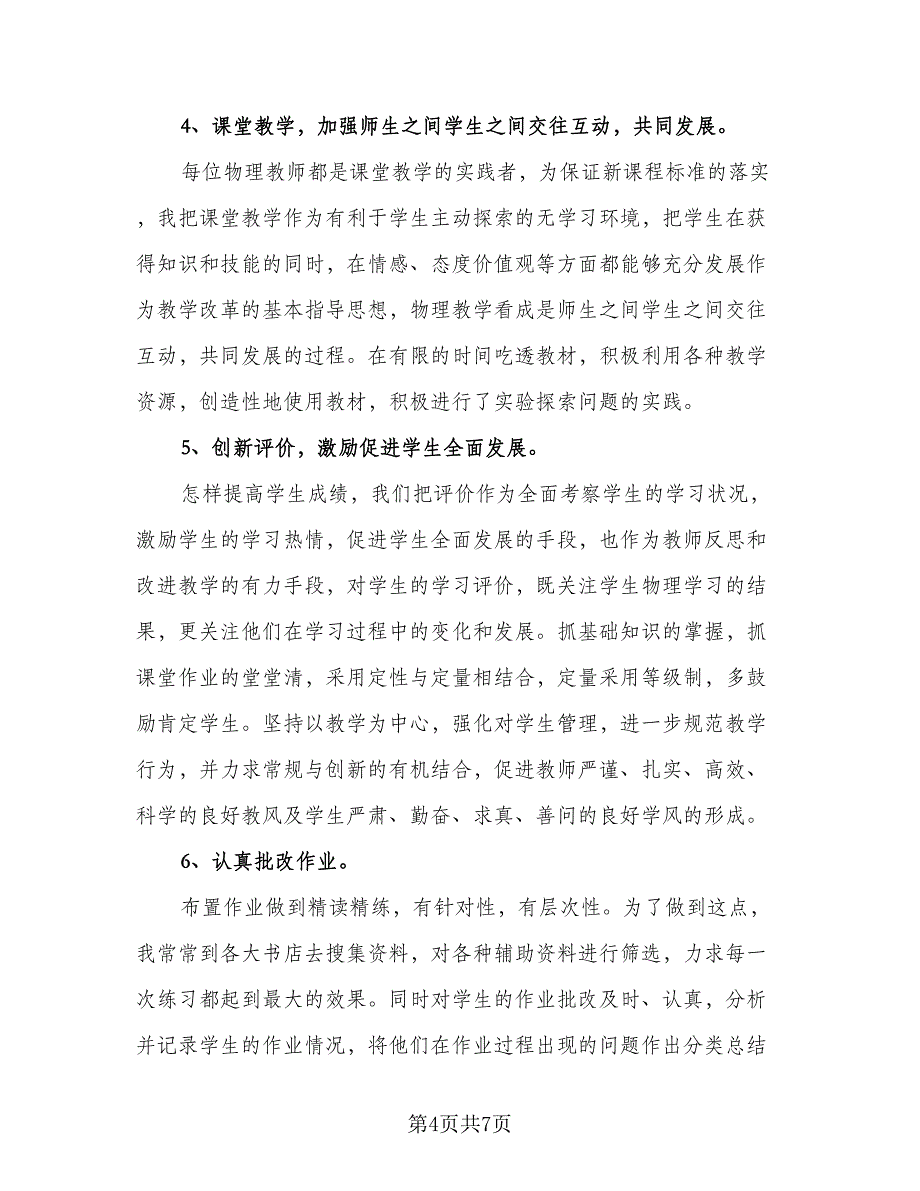 4、课堂教学，加强师生之间学生之间交往互动，共同发展。
每位物理教师都是课堂教学的实践者，为保证新课程标准的落实
，我把课堂教学作为有利于学生主动探索的无学习环境，把学生在获
得知识和技能的同时，在情感、态度价值观等方面都能够充分发展作
为教学改革的基本指导思想，物理教学看成是师生之间学生之间交往
互动，共同发展的过程。在有限的时间吃透教材，积极利用各种教学
资源，创造性地使用教材，积极进行了实验探索问题的实践。
5、创新评价，激励促进学生全面发展。
怎样提高学生成绩，我们把评价作为全面考察学生的学习状况，
激励学生的学习热情，促进学生全面发展的手段，也作为教师反思和
改进教学的有力手段，对学生的学习评价，既关注学生物理学习的结
果，更关注他们在学习过程中的变化和发展。抓基础知识的掌握，抓
课堂作业的堂堂清，采用定性与定量相结合，定量采用等级制，多鼓
励肯定学生。坚持以教学为中心，强化对学生管理，进一步规范教学
行为，并力求常规与创新的有机结合，促进教师严谨、扎实、高效、
科学的良好教风及学生严肃、勤奋、求真、善问的良好学风的形成。
6、认真批改作业。
布置作业做到精读精练，有针对性，有层次性。为了做到这点，
我常常到各大书店去搜集资料，对各种辅助资料进行筛选，力求每一
次练习都起到最大的效果。同时对学生的作业批改及时、认真，分析
并记录学生的作业情况，将他们在作业过程出现的问题作出分类总结
第4页共7页